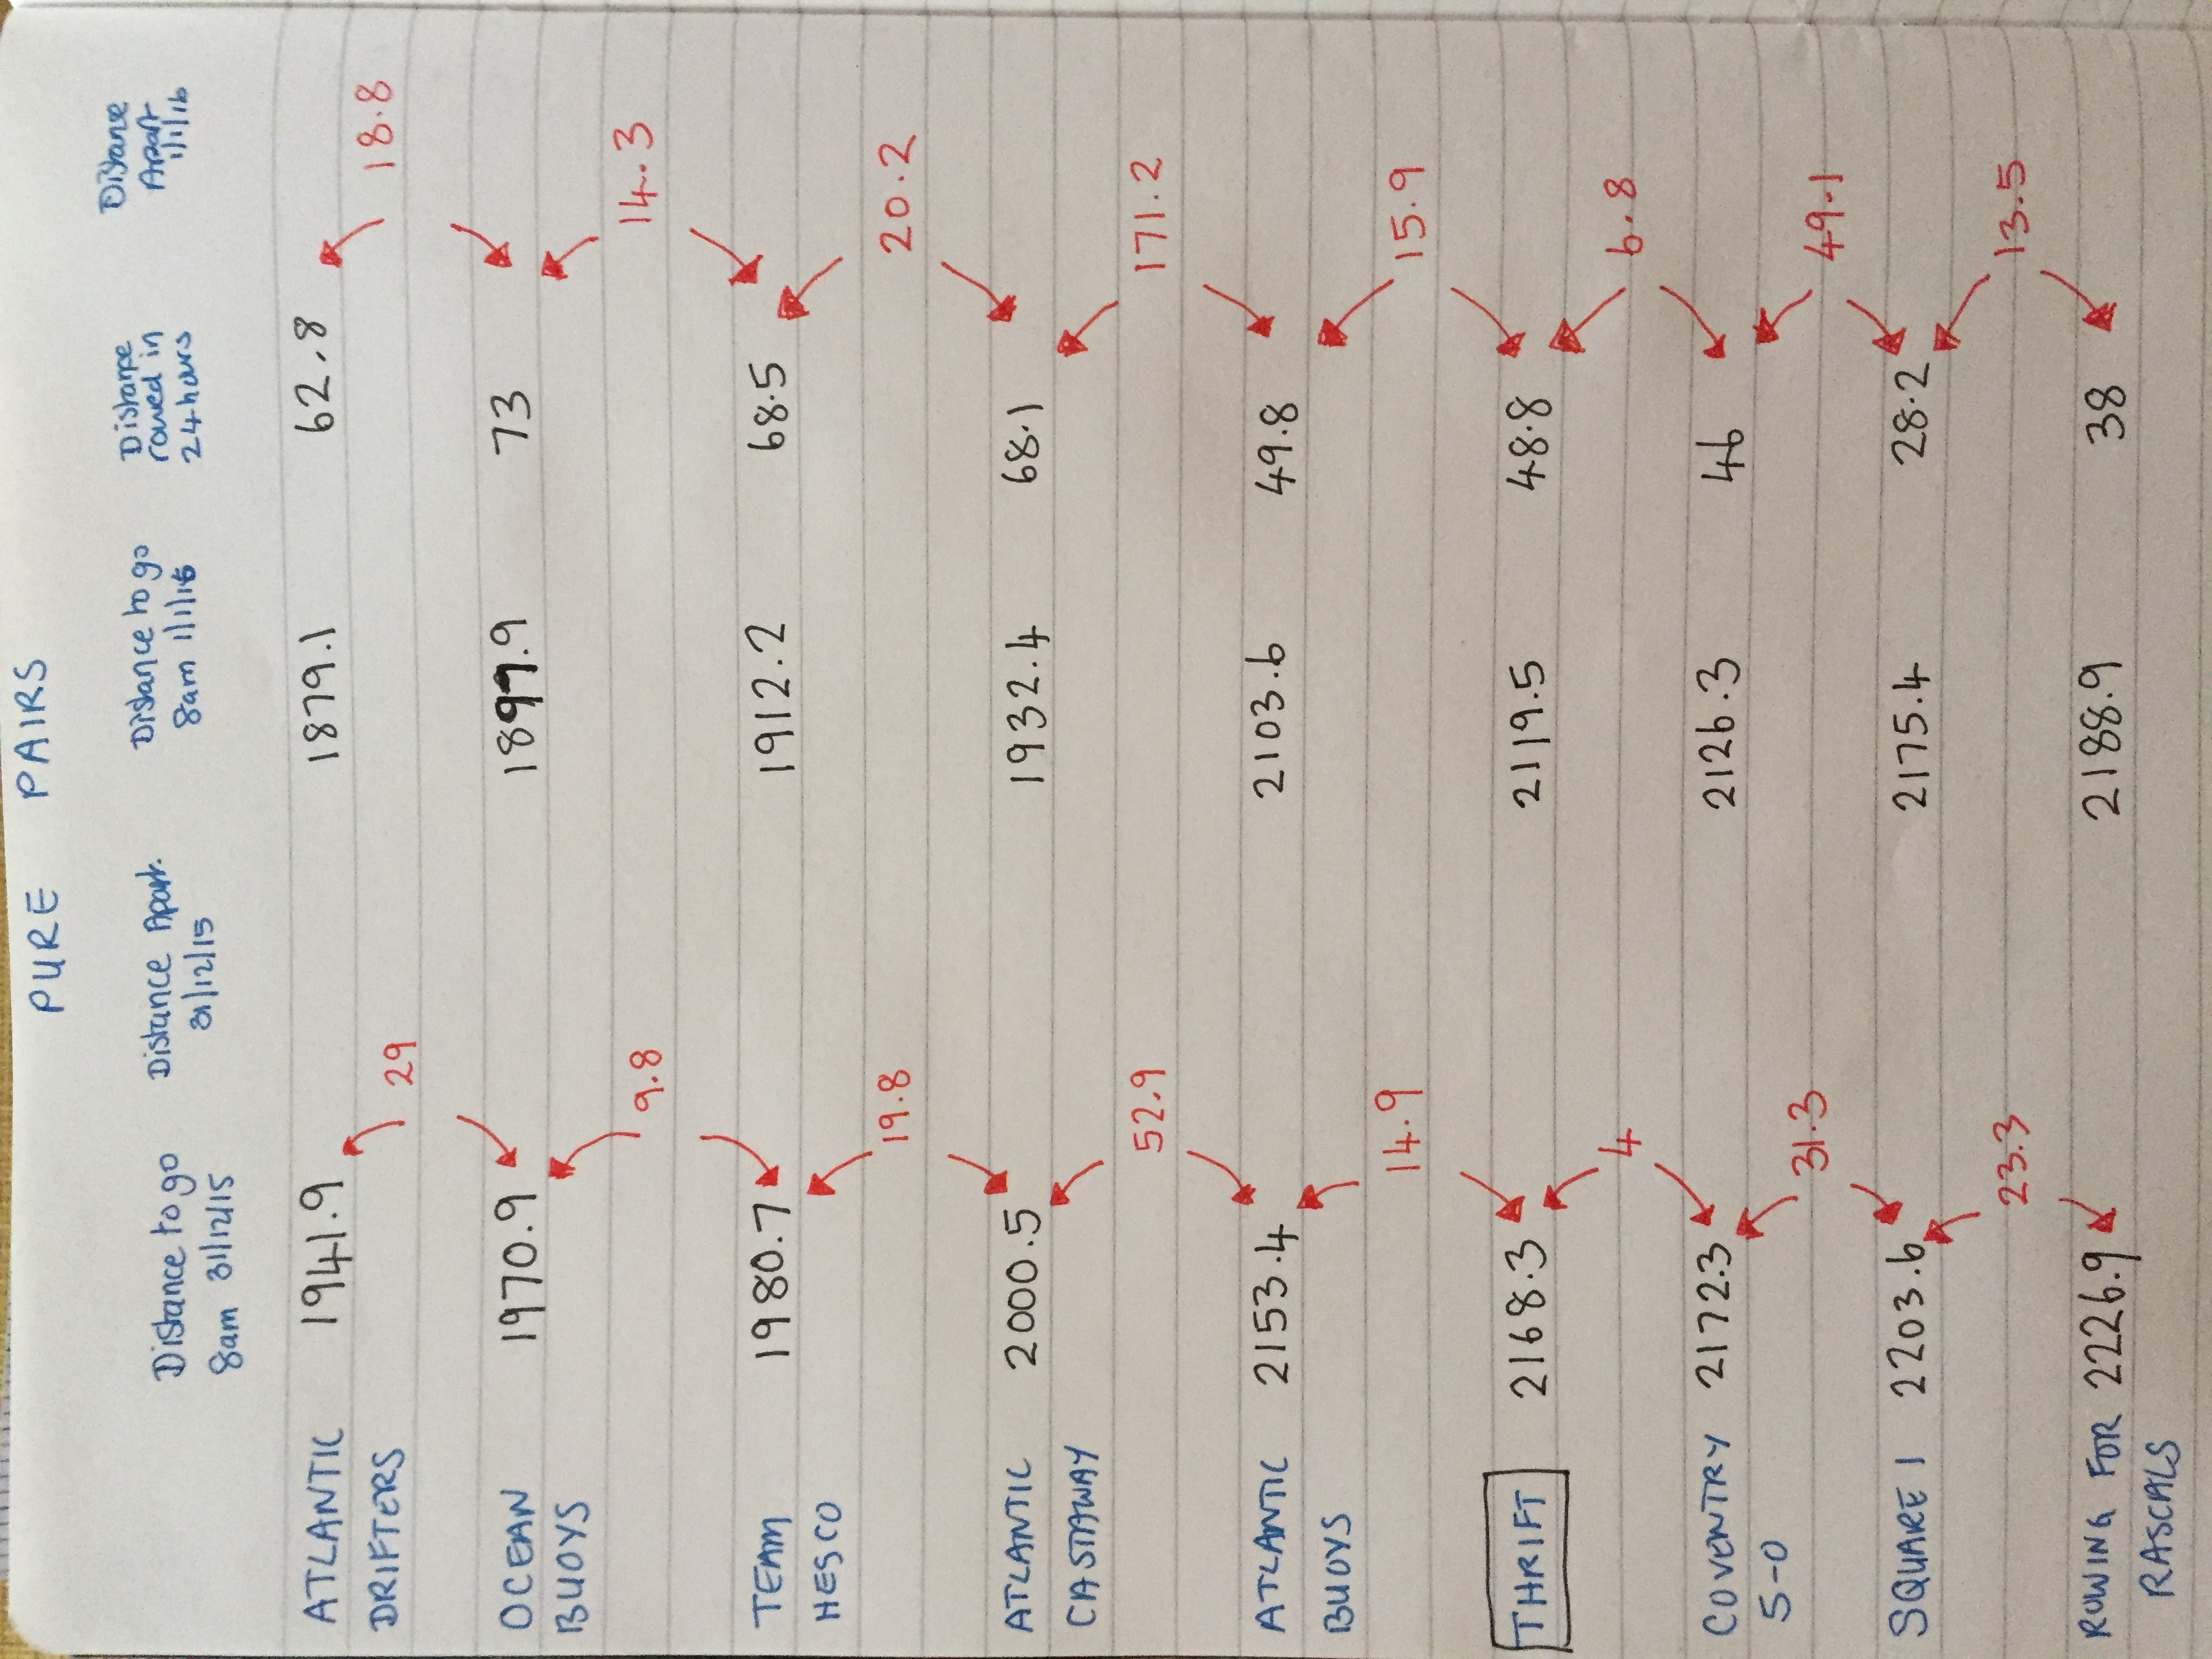 PURE PAIRS
Distance to go
8am 31/12/15
Distance Apart.
31/12/15
Distance to go
8am 1/1/16
Distance
rowed in
24 hours
Distance
Apart
1/1/16
ATLANTIC 1941.9 1879.1 62.8
DRIFTERS 29 18.8
OCEAN 1970.9 1897.9 73
BUOYS
9.8 14.3
TEAM 1980.7 1912.2 68.5
HESCO
19.8 20.2
ATLANTIC 2000.5 1932.4 68.1
CASTAWAY
52.9 171.2
ATLANTIC 2153.4 2103.6 49.8
BUOYS
14.9 15.9
THRIFT 2168.3 2119.5 48.8
4 6.8
COVENTRY 2172.3 2126.3 46
5-0
31.3 49.1
SQUARE 1 2203.6 2175.4 28.2
23.3 13.5
ROWING FOR 2226.9 2188.9 38
RASCALS